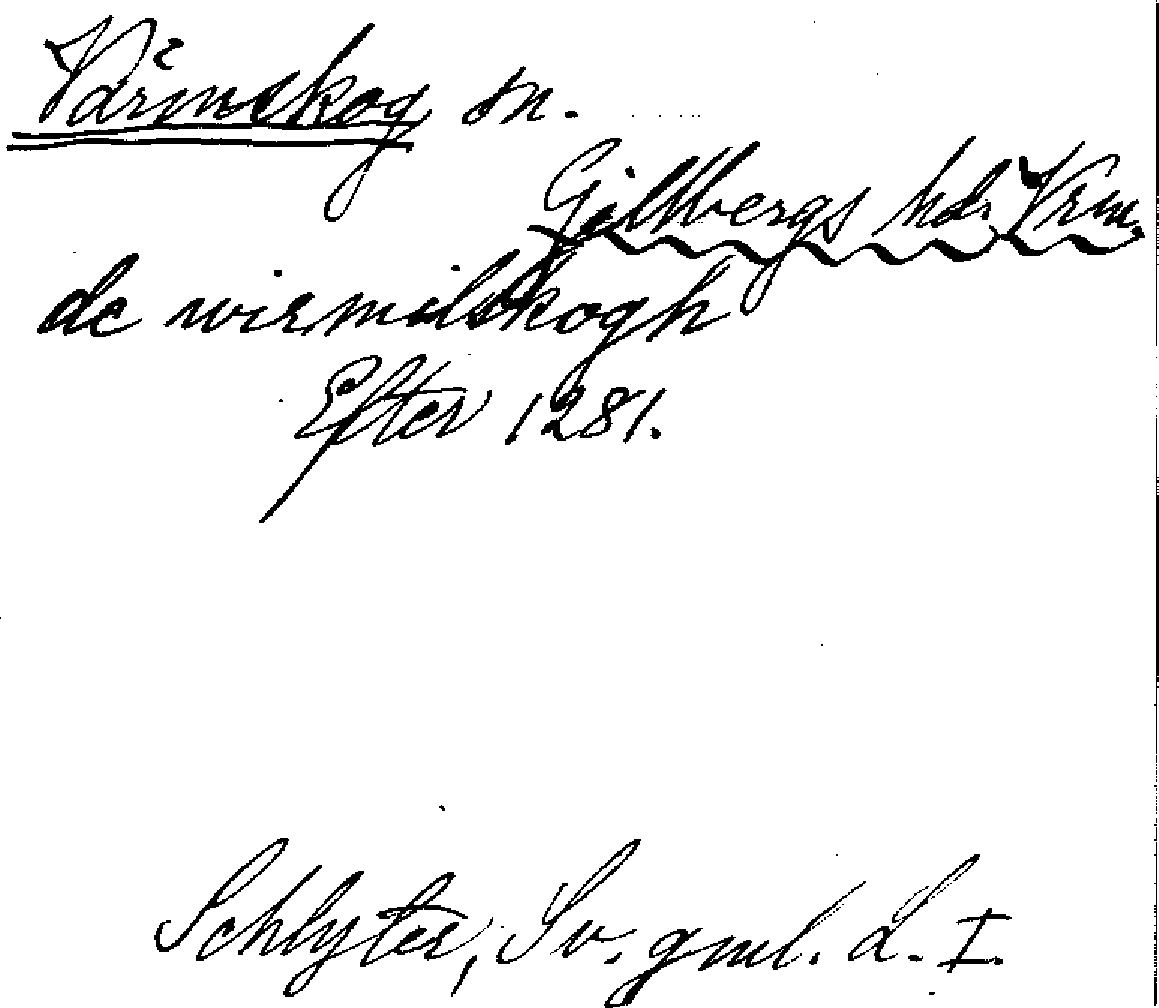 Värmskog sn.
Gillbergs hdr Vrm.
de wirmelskogh
Efter 1281.
Schlyter, Sv. gml. L. I.